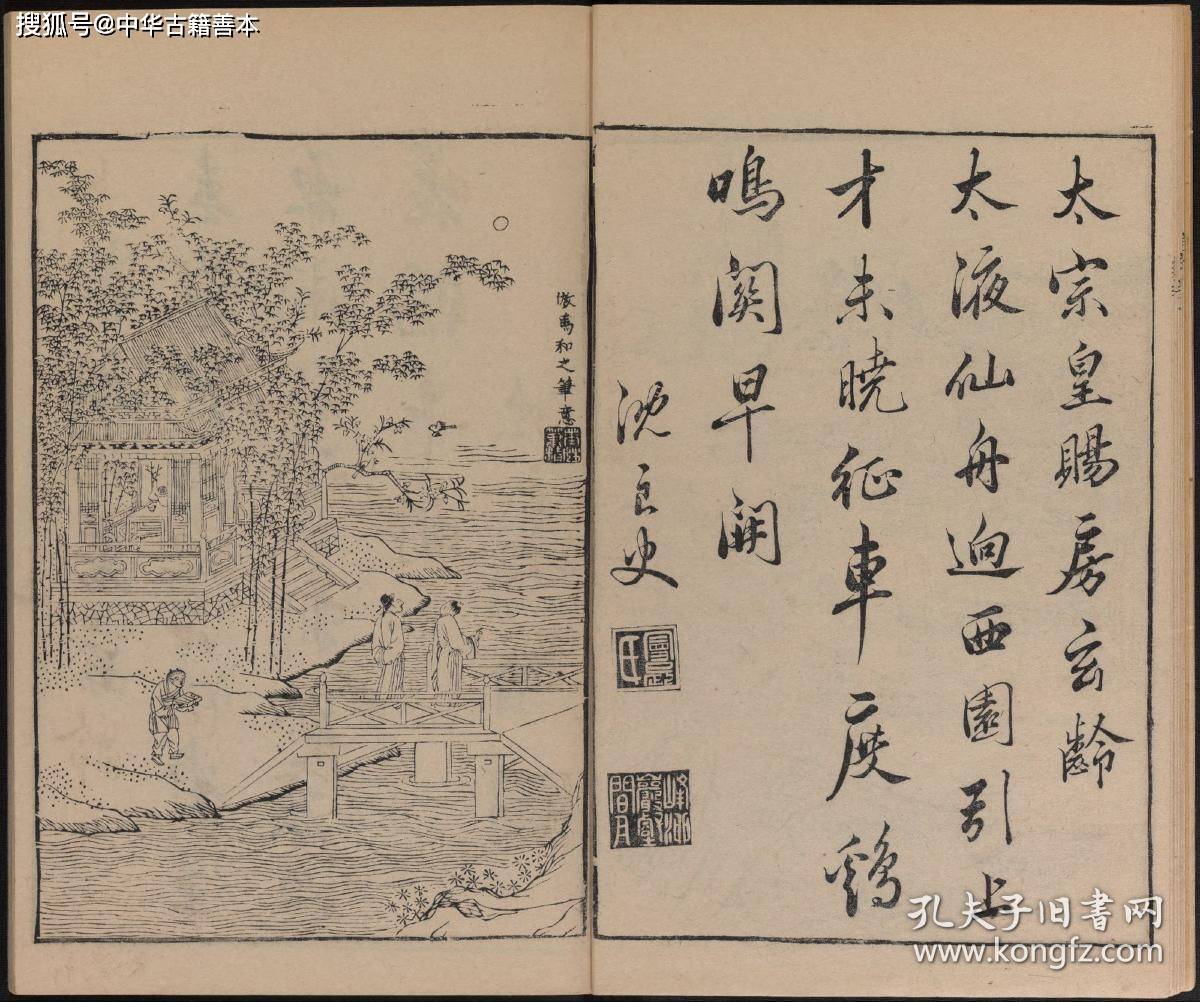 搜狐号@中华古籍善本
太宗皇賜房玄齡
太液仙舟迥西園引上
才未曉征車度鷄
鳴関早開
沈良史
倣馬和之筆意
孔夫子旧书网
www.kongfz.com